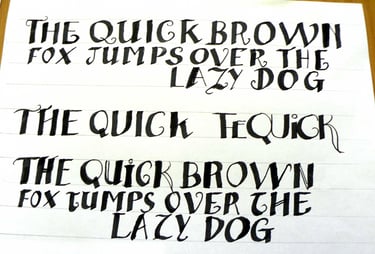 THE QUICK BROWN
FOX JUMPS OVER THE
LAZY DOG
THE QUICK TEQUICK
THE QUICK BROWN
FOX JUMPS OVER THE
LAZY DOG